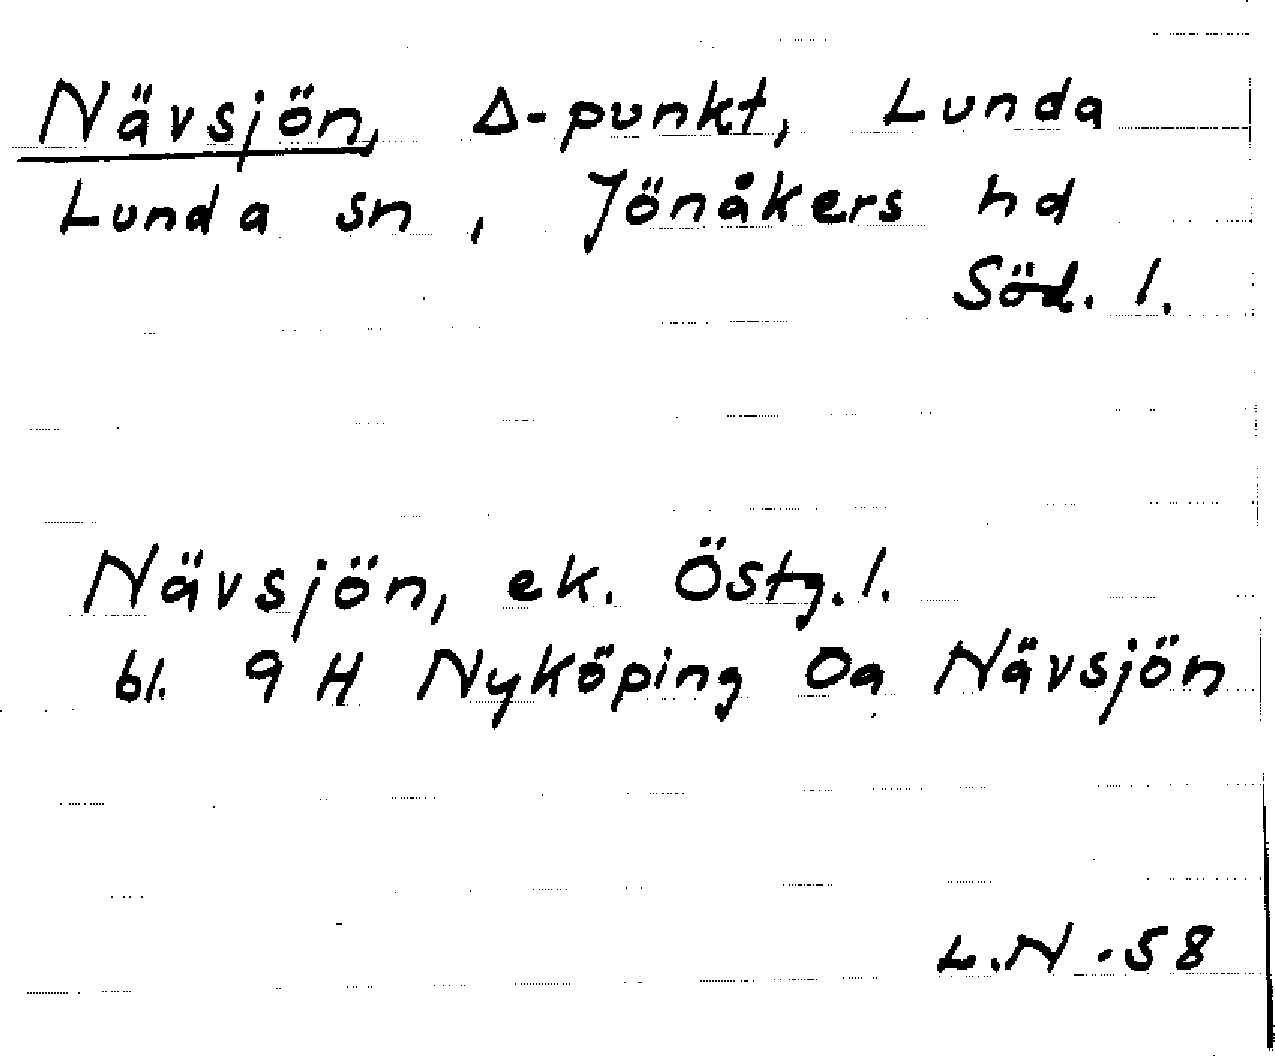 Nävsjön, Δ-punkt, Lunda
Lunda sn, Jönåkers hd
Söd. l.
Nävsjön, ek. Östg. l.
bl. 9 H Nyköping 0a Nävsjön
L.N -58